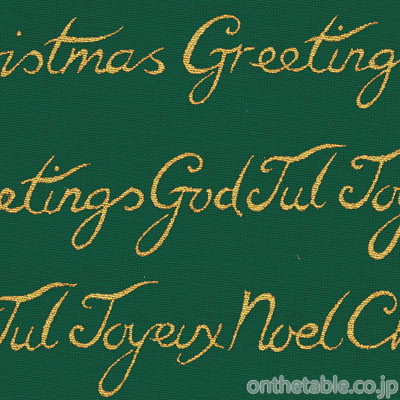 istmas Greeting
etings God Jul Joy
Jul Joyeux Noel Ch
onthetable.co.jp